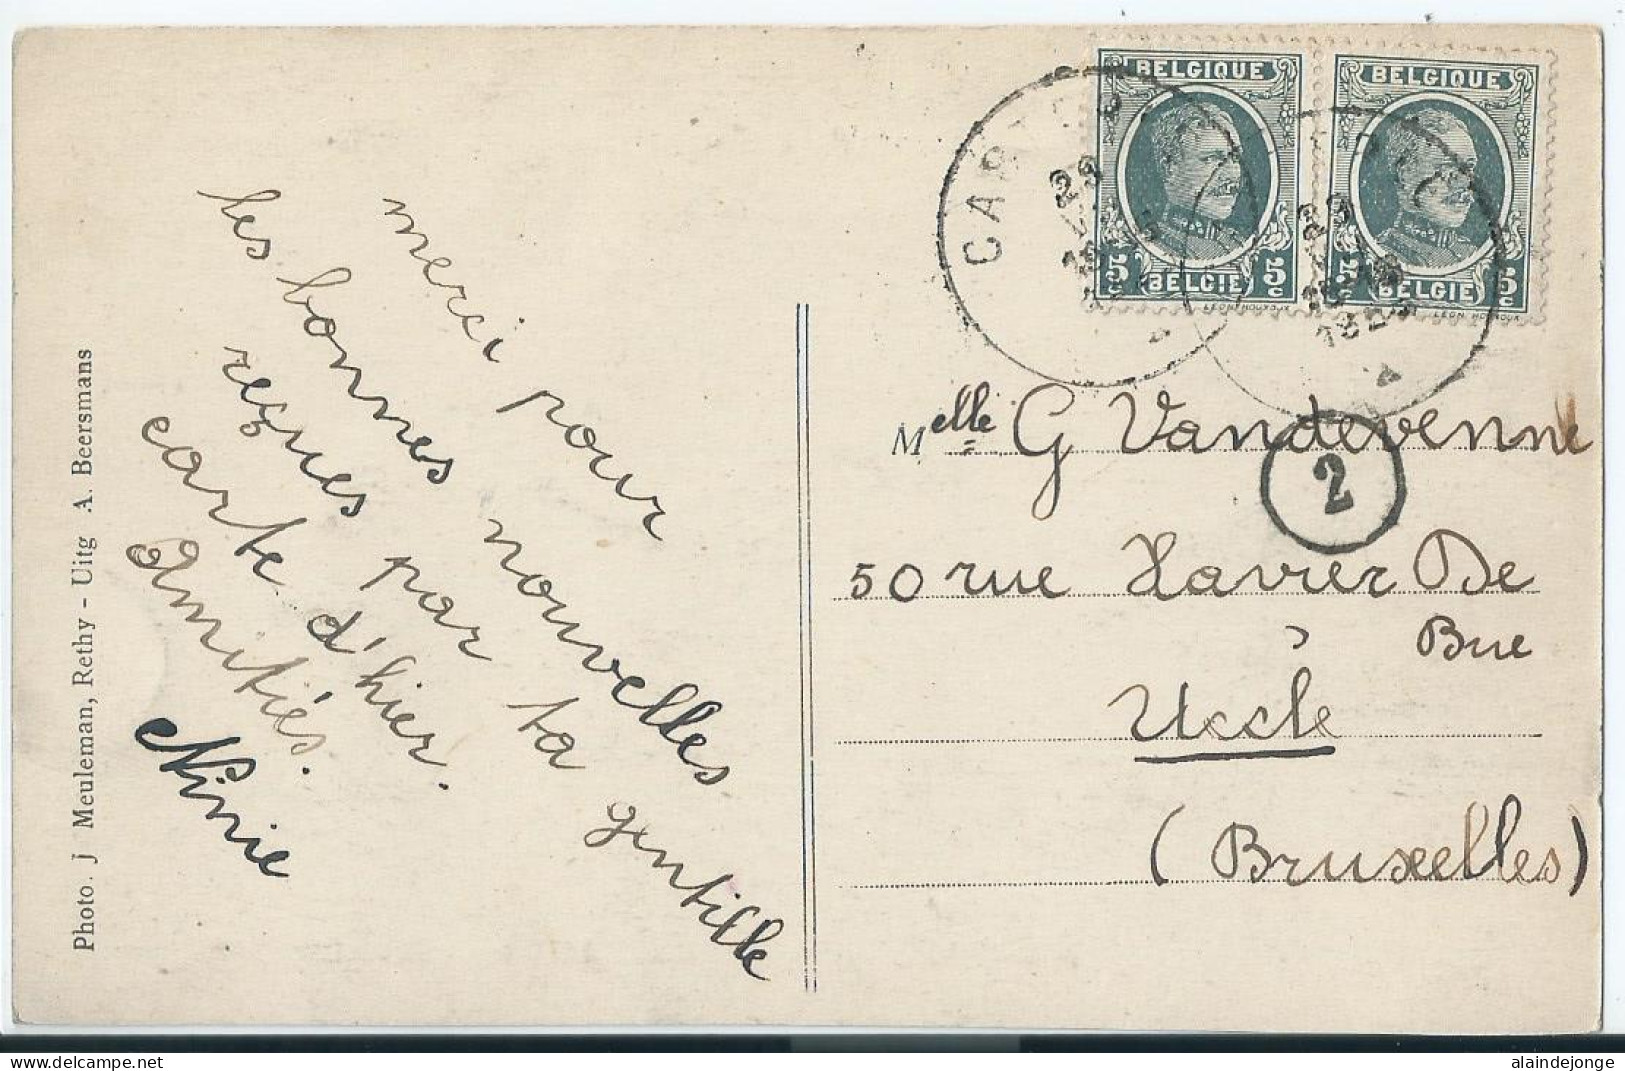 merci pour
les bonnes nouvelles
reçues par ta gentille
carte d'hier.
Amitiés.
Ninie
Photo. J Meuleman, Rethy - Uitg A. Beersmans
BELGIQUE
5c BELGIE 5c
BELGIQUE
5c BELGIE 5c
LEON HOUYOUX
29
29
Melle G Vandevenne
2
50 rue Xavier De
Bue
Uccle
(Bruxelles)
delcampe.net
alaindejonge